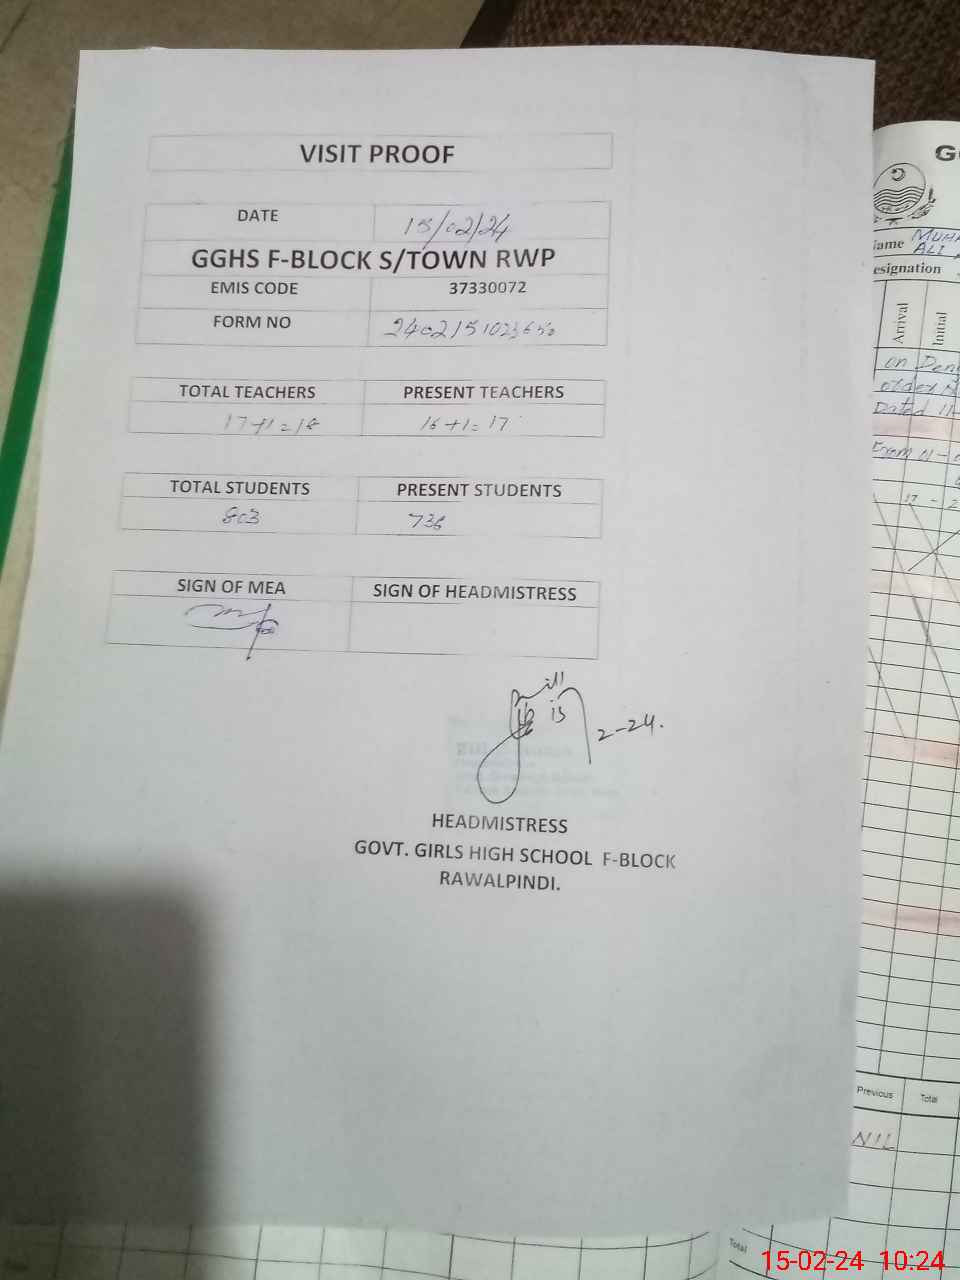 VISIT PROOF
DATE 15/02/24
GGHS F-BLOCK S/TOWN RWP
EMIS CODE 37330072
FORM NO
TOTAL TEACHERS PRESENT TEACHERS
17+1=18 16+1=17
TOTAL STUDENTS PRESENT STUDENTS
803 736
SIGN OF MEA SIGN OF HEADMISTRESS
2-24.
HEADMISTRESS
GOVT. GIRLS HIGH SCHOOL F-BLOCK
RAWALPINDI.
ALI
Arrival Initial
on
Dated 11-
From
17 - 2
Previous Total
NIL
Total
15-02-24 10:24